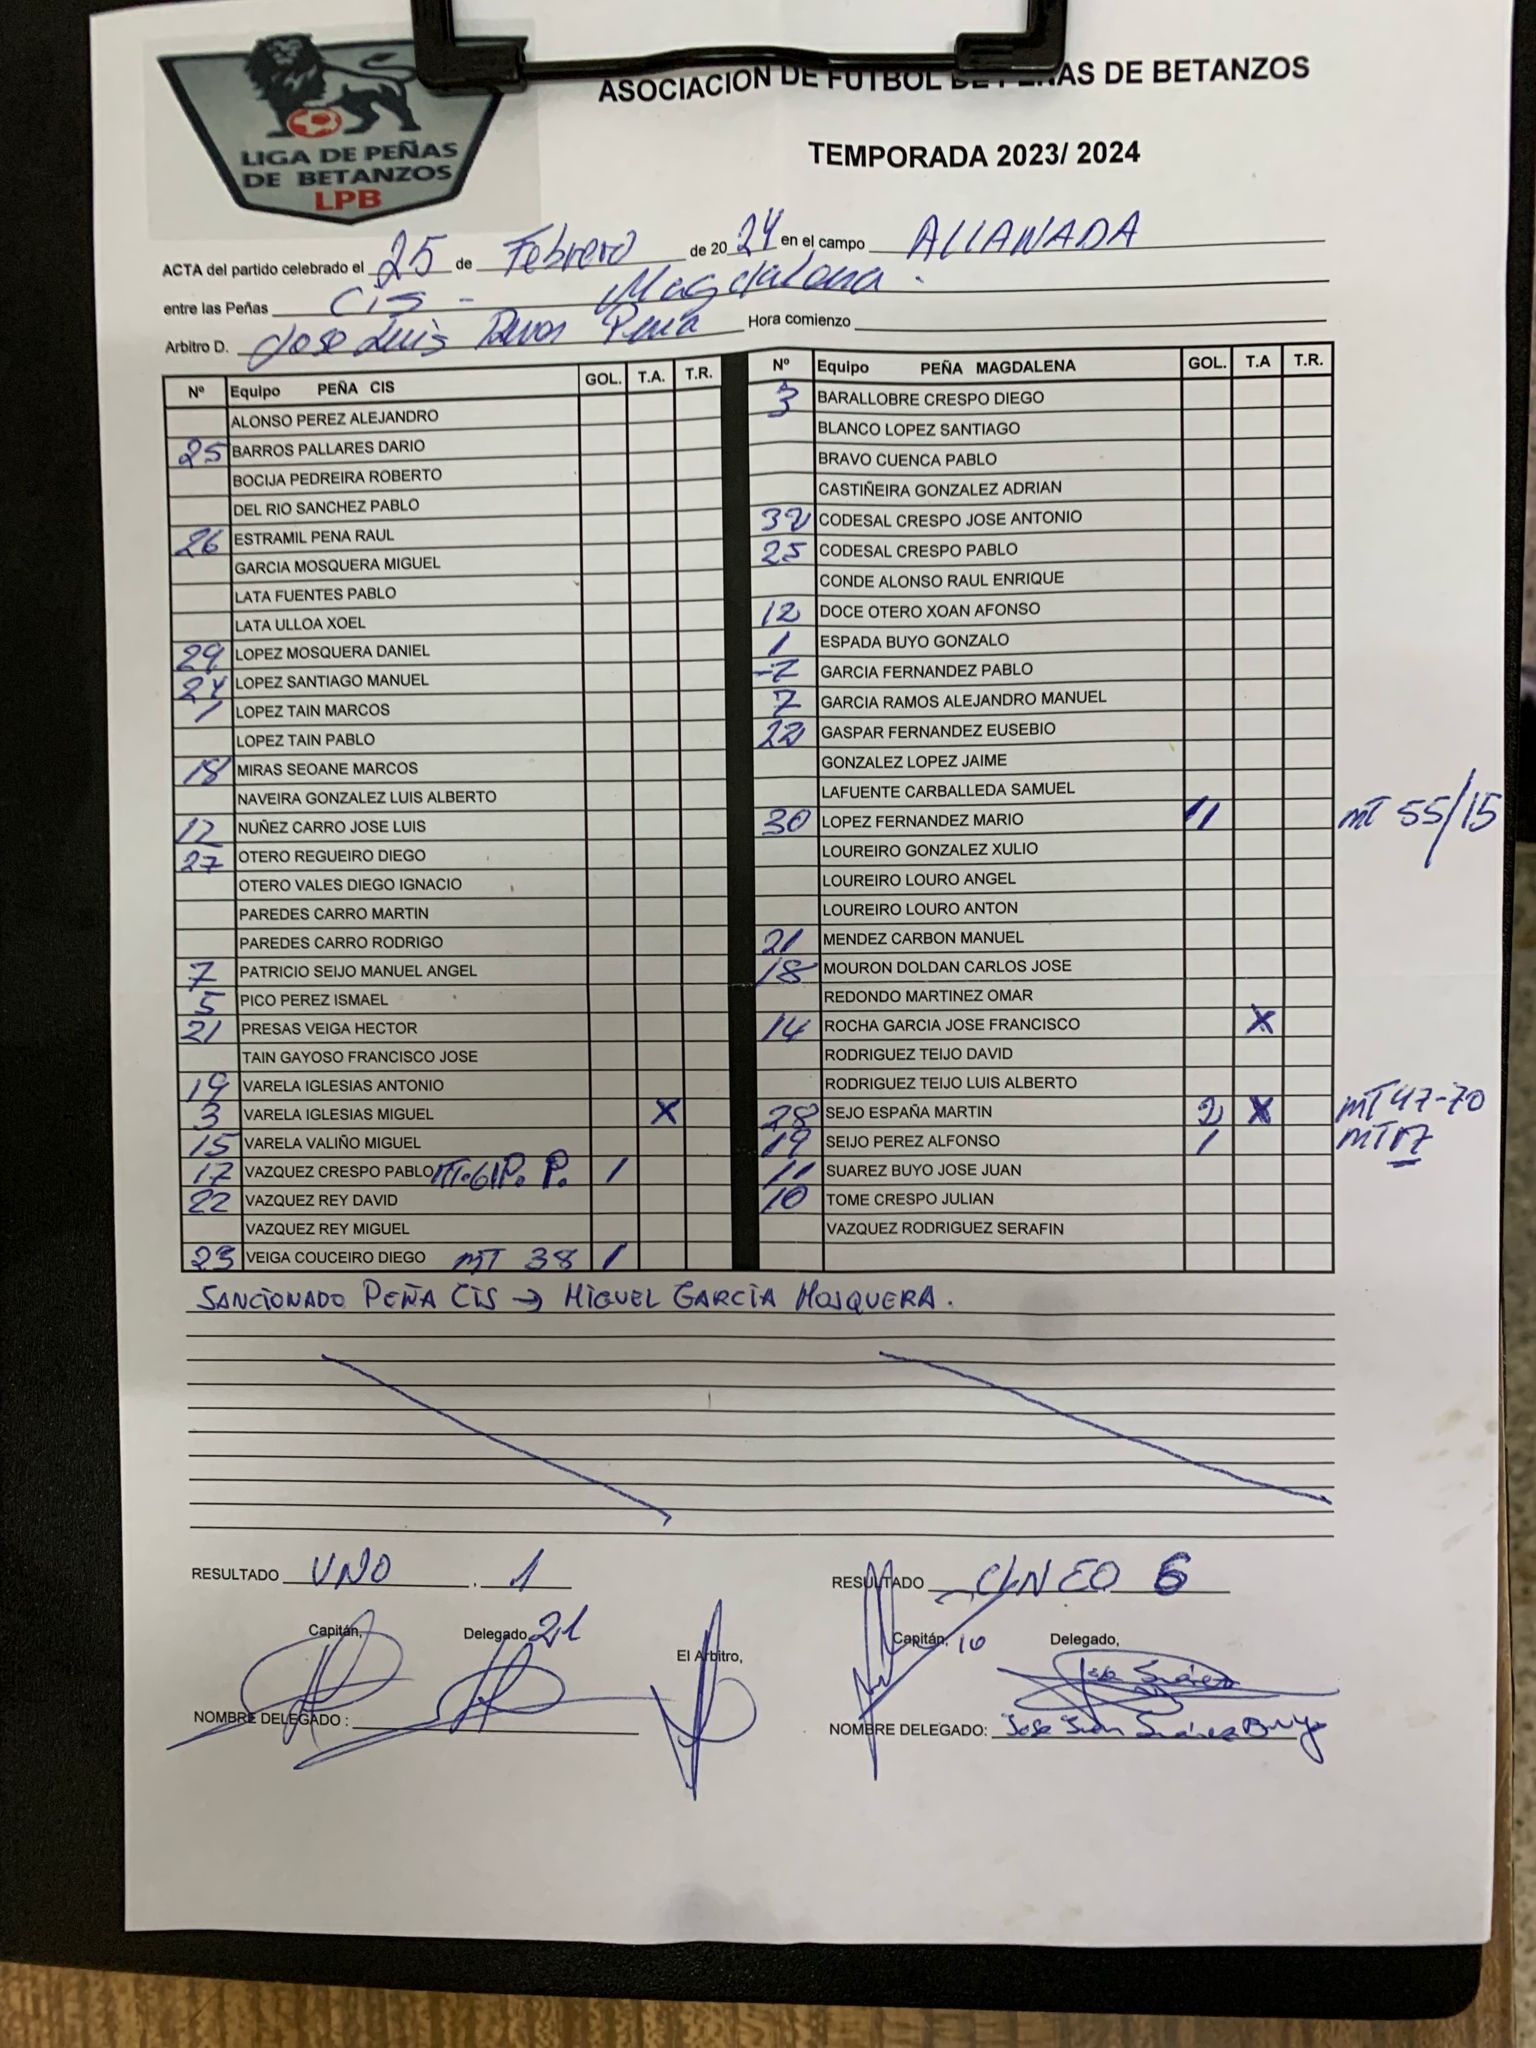 LIGA DE PEÑAS
DE BETANZOS
LPB
ASOCIACION DE FUTBOL DE PEÑAS DE BETANZOS
TEMPORADA 2023/ 2024
ACTA del partido celebrado el 25 de Febrero de 2024 en el campo
entre las Peñas Cis - Magdalena.
Arbitro D. Jose Luis Pena Hora comienzo
Nº Equipo PEÑA CIS GOL. T.A. T.R.
ALONSO PEREZ ALEJANDRO
25 BARROS PALLARES DARIO
BOCIJA PEDREIRA ROBERTO
DEL RIO SANCHEZ PABLO
26 ESTRAMIL PENA RAUL
GARCIA MOSQUERA MIGUEL
LATA FUENTES PABLO
LATA ULLOA XOEL
29 LOPEZ MOSQUERA DANIEL
24 LOPEZ SANTIAGO MANUEL
1 LOPEZ TAIN MARCOS
LOPEZ TAIN PABLO
18 MIRAS SEOANE MARCOS
NAVEIRA GONZALEZ LUIS ALBERTO
12 NUÑEZ CARRO JOSE LUIS
27 OTERO REGUEIRO DIEGO
OTERO VALES DIEGO IGNACIO
PAREDES CARRO MARTIN
PAREDES CARRO RODRIGO
7 PATRICIO SEIJO MANUEL ANGEL
5 PICO PEREZ ISMAEL
21 PRESAS VEIGA HECTOR
TAIN GAYOSO FRANCISCO JOSE
19 VARELA IGLESIAS ANTONIO
3 VARELA IGLESIAS MIGUEL X
15 VARELA VALIÑO MIGUEL
17 VAZQUEZ CRESPO PABLO MT.61 P. P. 1
22 VAZQUEZ REY DAVID
VAZQUEZ REY MIGUEL
23 VEIGA COUCEIRO DIEGO MT 38 1
Nº Equipo PEÑA MAGDALENA GOL. T.A T.R.
3 BARALLOBRE CRESPO DIEGO
BLANCO LOPEZ SANTIAGO
BRAVO CUENCA PABLO
CASTIÑEIRA GONZALEZ ADRIAN
32 CODESAL CRESPO JOSE ANTONIO
25 CODESAL CRESPO PABLO
CONDE ALONSO RAUL ENRIQUE
12 DOCE OTERO XOAN AFONSO
1 ESPADA BUYO GONZALO
GARCIA FERNANDEZ PABLO
7 GARCIA RAMOS ALEJANDRO MANUEL
22 GASPAR FERNANDEZ EUSEBIO
GONZALEZ LOPEZ JAIME
LAFUENTE CARBALLEDA SAMUEL
30 LOPEZ FERNANDEZ MARIO 11 MT 55/15
LOUREIRO GONZALEZ XULIO
LOUREIRO LOURO ANGEL
LOUREIRO LOURO ANTON
21 MENDEZ CARBON MANUEL
18 MOURON DOLDAN CARLOS JOSE
REDONDO MARTINEZ OMAR
14 ROCHA GARCIA JOSE FRANCISCO X
RODRIGUEZ TEIJO DAVID
RODRIGUEZ TEIJO LUIS ALBERTO
28 SEJO ESPAÑA MARTIN 2 X MT 47-70
19 SEIJO PEREZ ALFONSO 1 MT
11 SUAREZ BUYO JOSE JUAN
10 TOME CRESPO JULIAN
VAZQUEZ RODRIGUEZ SERAFIN
SANCIONADO PEÑA CIS → MIGUEL GARCÍA MOSQUERA.
RESULTADO UNO . 1
RESULTADO 6
Capitán, Delegado, 21
El Arbitro,
Capitán, 10 Delegado,
NOMBRE DELEGADO :
NOMBRE DELEGADO: Jose Juan Suárez Buyo